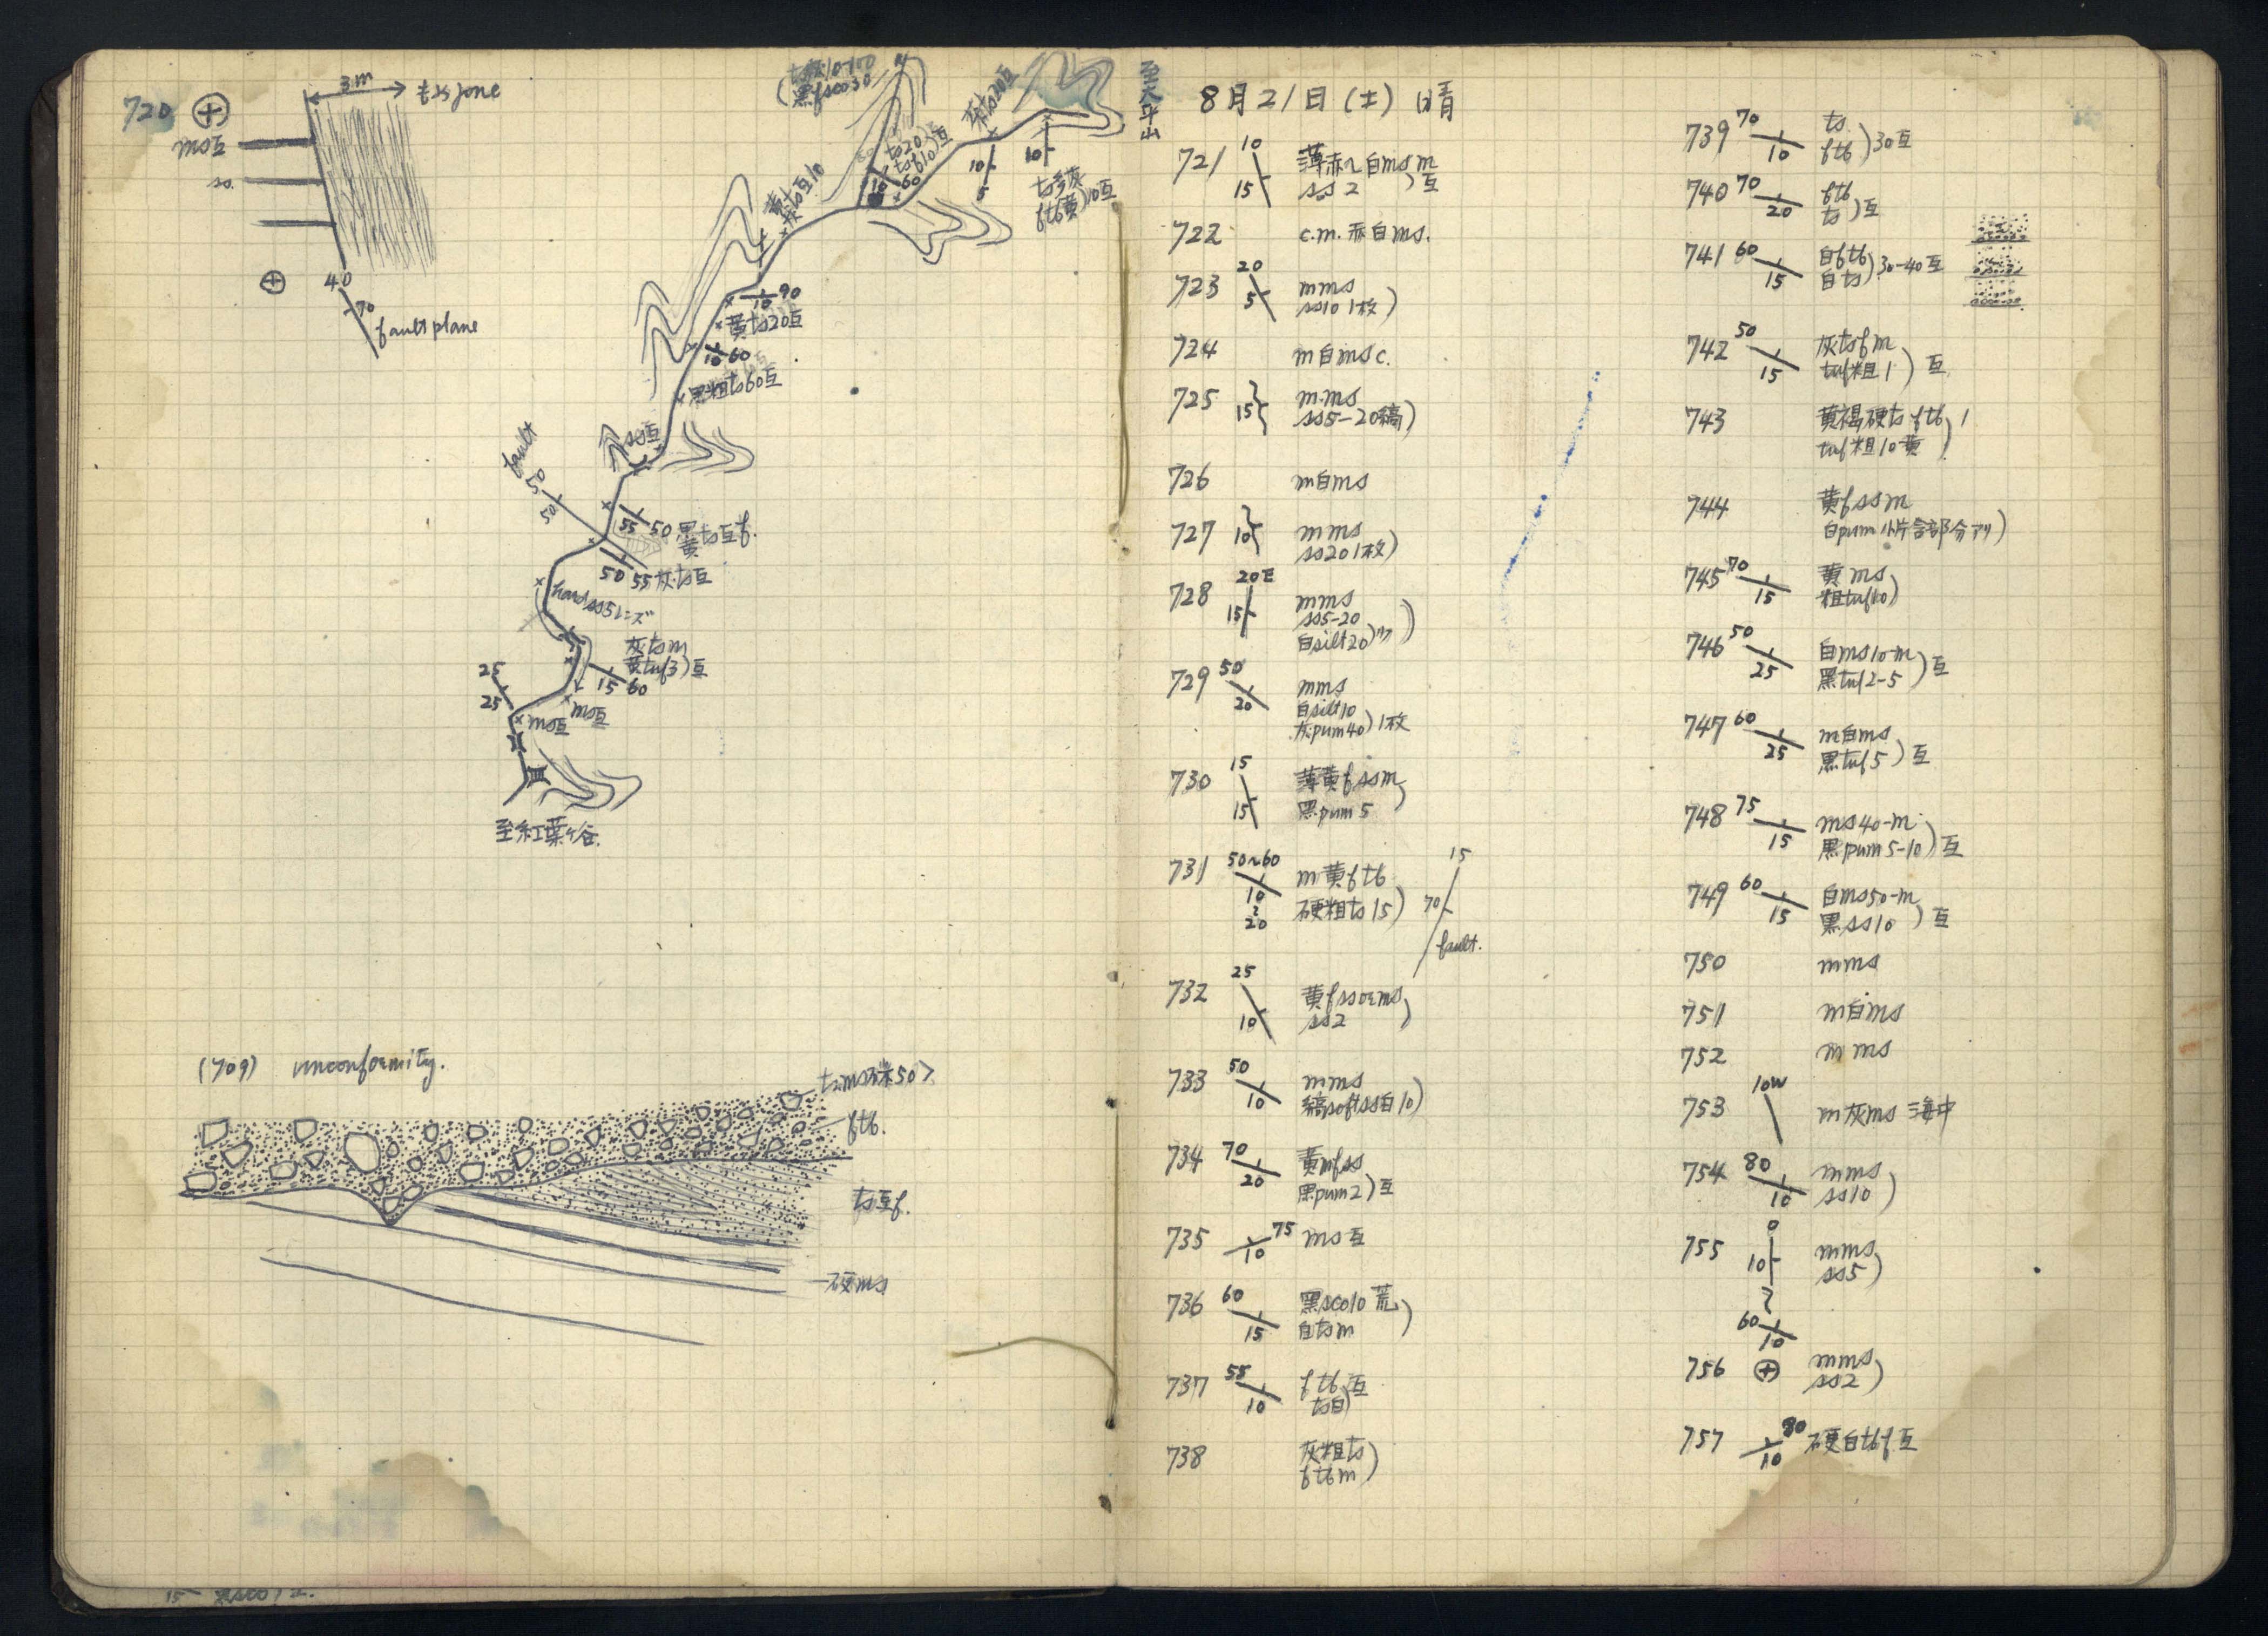 720
3m
zone
ms互
ss.
40
70
fault plane
黒fsco30
茶ts20互
ts20
tsf10)互
10 60
10
5
10
黄
茶ts互10
10 90
黄ts20互
10 60
黒粗ts60互
ss互
fault
50
50
55 50 黒
黄ts互f.
50 55 灰ts互
hard ss5レンズ
灰tsm
黄tuf3)互
15 60
25
25
ms互
ms互
至紅葉ヶ谷.
(709) unconformity.
ftb.
ts互f.
硬ms
至天斗山
8月21日(土) 晴
721 10 15 薄赤~白ms m
ss 2 )互
722 c.m. 赤白ms.
723 20 5 mms
ss10 1枚)
724 m白ms c.
725 15 m.ms
ss5-20縞)
726 m白ms
727 10 mms
ss20 1枚)
728 20E 15 mms
ss5-20
白silt20)
729 50 20 mms
白silt10
灰pum40)1枚
730 15 15 薄黄fssm
黒pum 5)
731 50~60 10~20 m黄ftb
硬粗ts 15)
15
70
fault.
732 25 10 黄fss or ms
ss2)
733 50 10 mms
縞softss白10)
734 70 20 黄mfss
黒pum2)互
735 75 10 ms互
736 60 15 黒sco10 荒
白tsm)
737 55 10 ftb互
ts白)
738 灰粗ts
ftbm)
739 70 10 ts
ftb)30互
740 70 20 ftb
ts)互
741 60 15 白ftb
白ts)30-40互
742 50 15 灰tsfm
tuf粗1)互
743 黄褐硬ts ftb
tuf粗10黄)
744 黄fssm
白pum小片含部分アリ)
745 70 15 黄ms
粗tuf10)
746 50 25 白ms10-m
黒tuf2-5)互
747 60 25 m白ms
黒tuf5)互
748 75 15 ms40-m
黒pum5-10)互
749 60 15 白ms50-m
黒ss10)互
750 mms
751 m白ms
752 mms
753 10W m灰ms 海中
754 80 10 mms
ss10)
755 0 10 mms
ss5)
60 10
756 ⊕ mms
ss2)
757 80 10 硬白tbf互